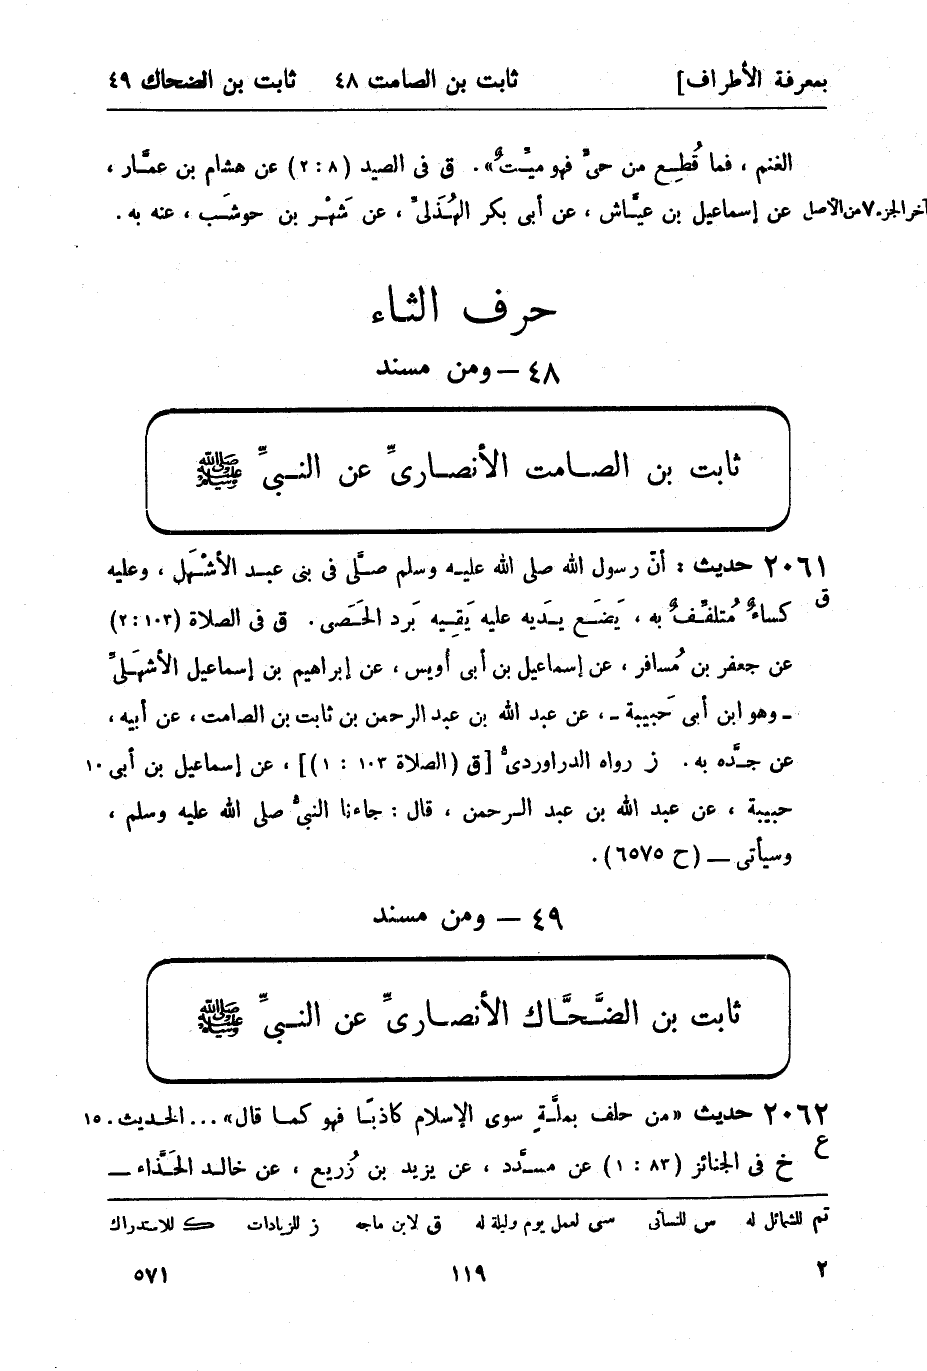 بمعرفة الأطراف] ثابت بن الصامت ٤٨ ثابت بن الضحاك ٤٩
الغنم ، فما قُطِع من حيٍّ فهو ميّتٌ». ق فى الصيد (٨ : ٢) عن هشام بن عمَّار ،
آخر الجزء ٧ من الأصل عن إسماعيل بن عيَّاش ، عن أبى بكر الهُذَلىّ ، عن شَهْر بن حوشَب ، عنه به .
حرف الثاء
٤٨ — ومن مسند
ثابت بن الصامت الأنصارىِّ عن النبىِّ ﷺ
٢٠٦١ حديث : أنّ رسول الله صلى الله عليه وسلم صلَّى فى بنى عبد الأشْهَل ، وعليه
ق
كساءٌ مُتلفِّفٌ به ، يَضَع يَديه عليه يَقِيه بَرد الحَصَى . ق فى الصلاة (١٠٣ : ٢)
عن جعفر بن مُسافر ، عن إسماعيل بن أبى أويس ، عن إبراهيم بن إسماعيل الأشهَلىِّ
ـ وهو ابن أبى حَبيبة ـ ، عن عبد الله بن عبد الرحمن بن ثابت بن الصامت ، عن أبيه ،
عن جدَّه به . ز رواه الدراوردىُّ [ق (الصلاة ١٠٣ : ١)] ، عن إسماعيل بن أبى ١٠
حبيبة ، عن عبد الله بن عبد الرحمن ، قال : جاءنا النبىُّ صلى الله عليه وسلم ،
وسيأتى — (ح ٦٥٧٥) .
٤٩ — ومن مسند
ثابت بن الضَّحَّاك الأنصارىِّ عن النبىِّ ﷺ
٢٠٦٢ حديث «من حلف بملَّةٍ سوى الإسلام كاذبًا فهو كما قال» ... الحديث . ١٥
ع
خ فى الجنائز (٨٣ : ١) عن مسدَّد ، عن يزيد بن زُريع ، عن خالد الحَذَّاء —
تم للشمائل له س للنسائى سى لعمل يوم وليلة له ق لابن ماجه ز للزيادات ك للاستدراك
٢ ١١٩ ٥٧١